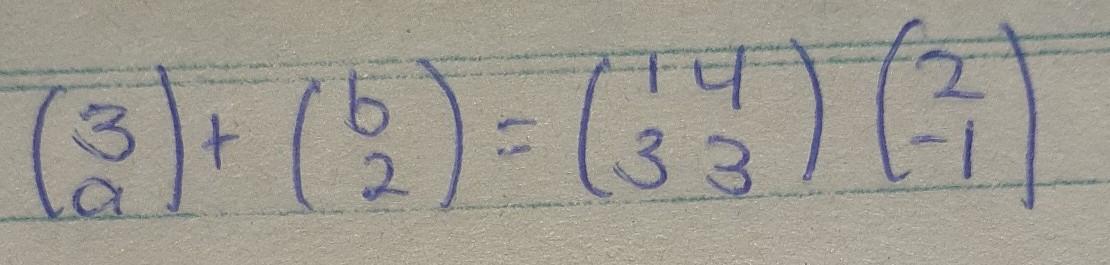 (3 a) + (b 2) = (1 4 3 3) (2 -1)